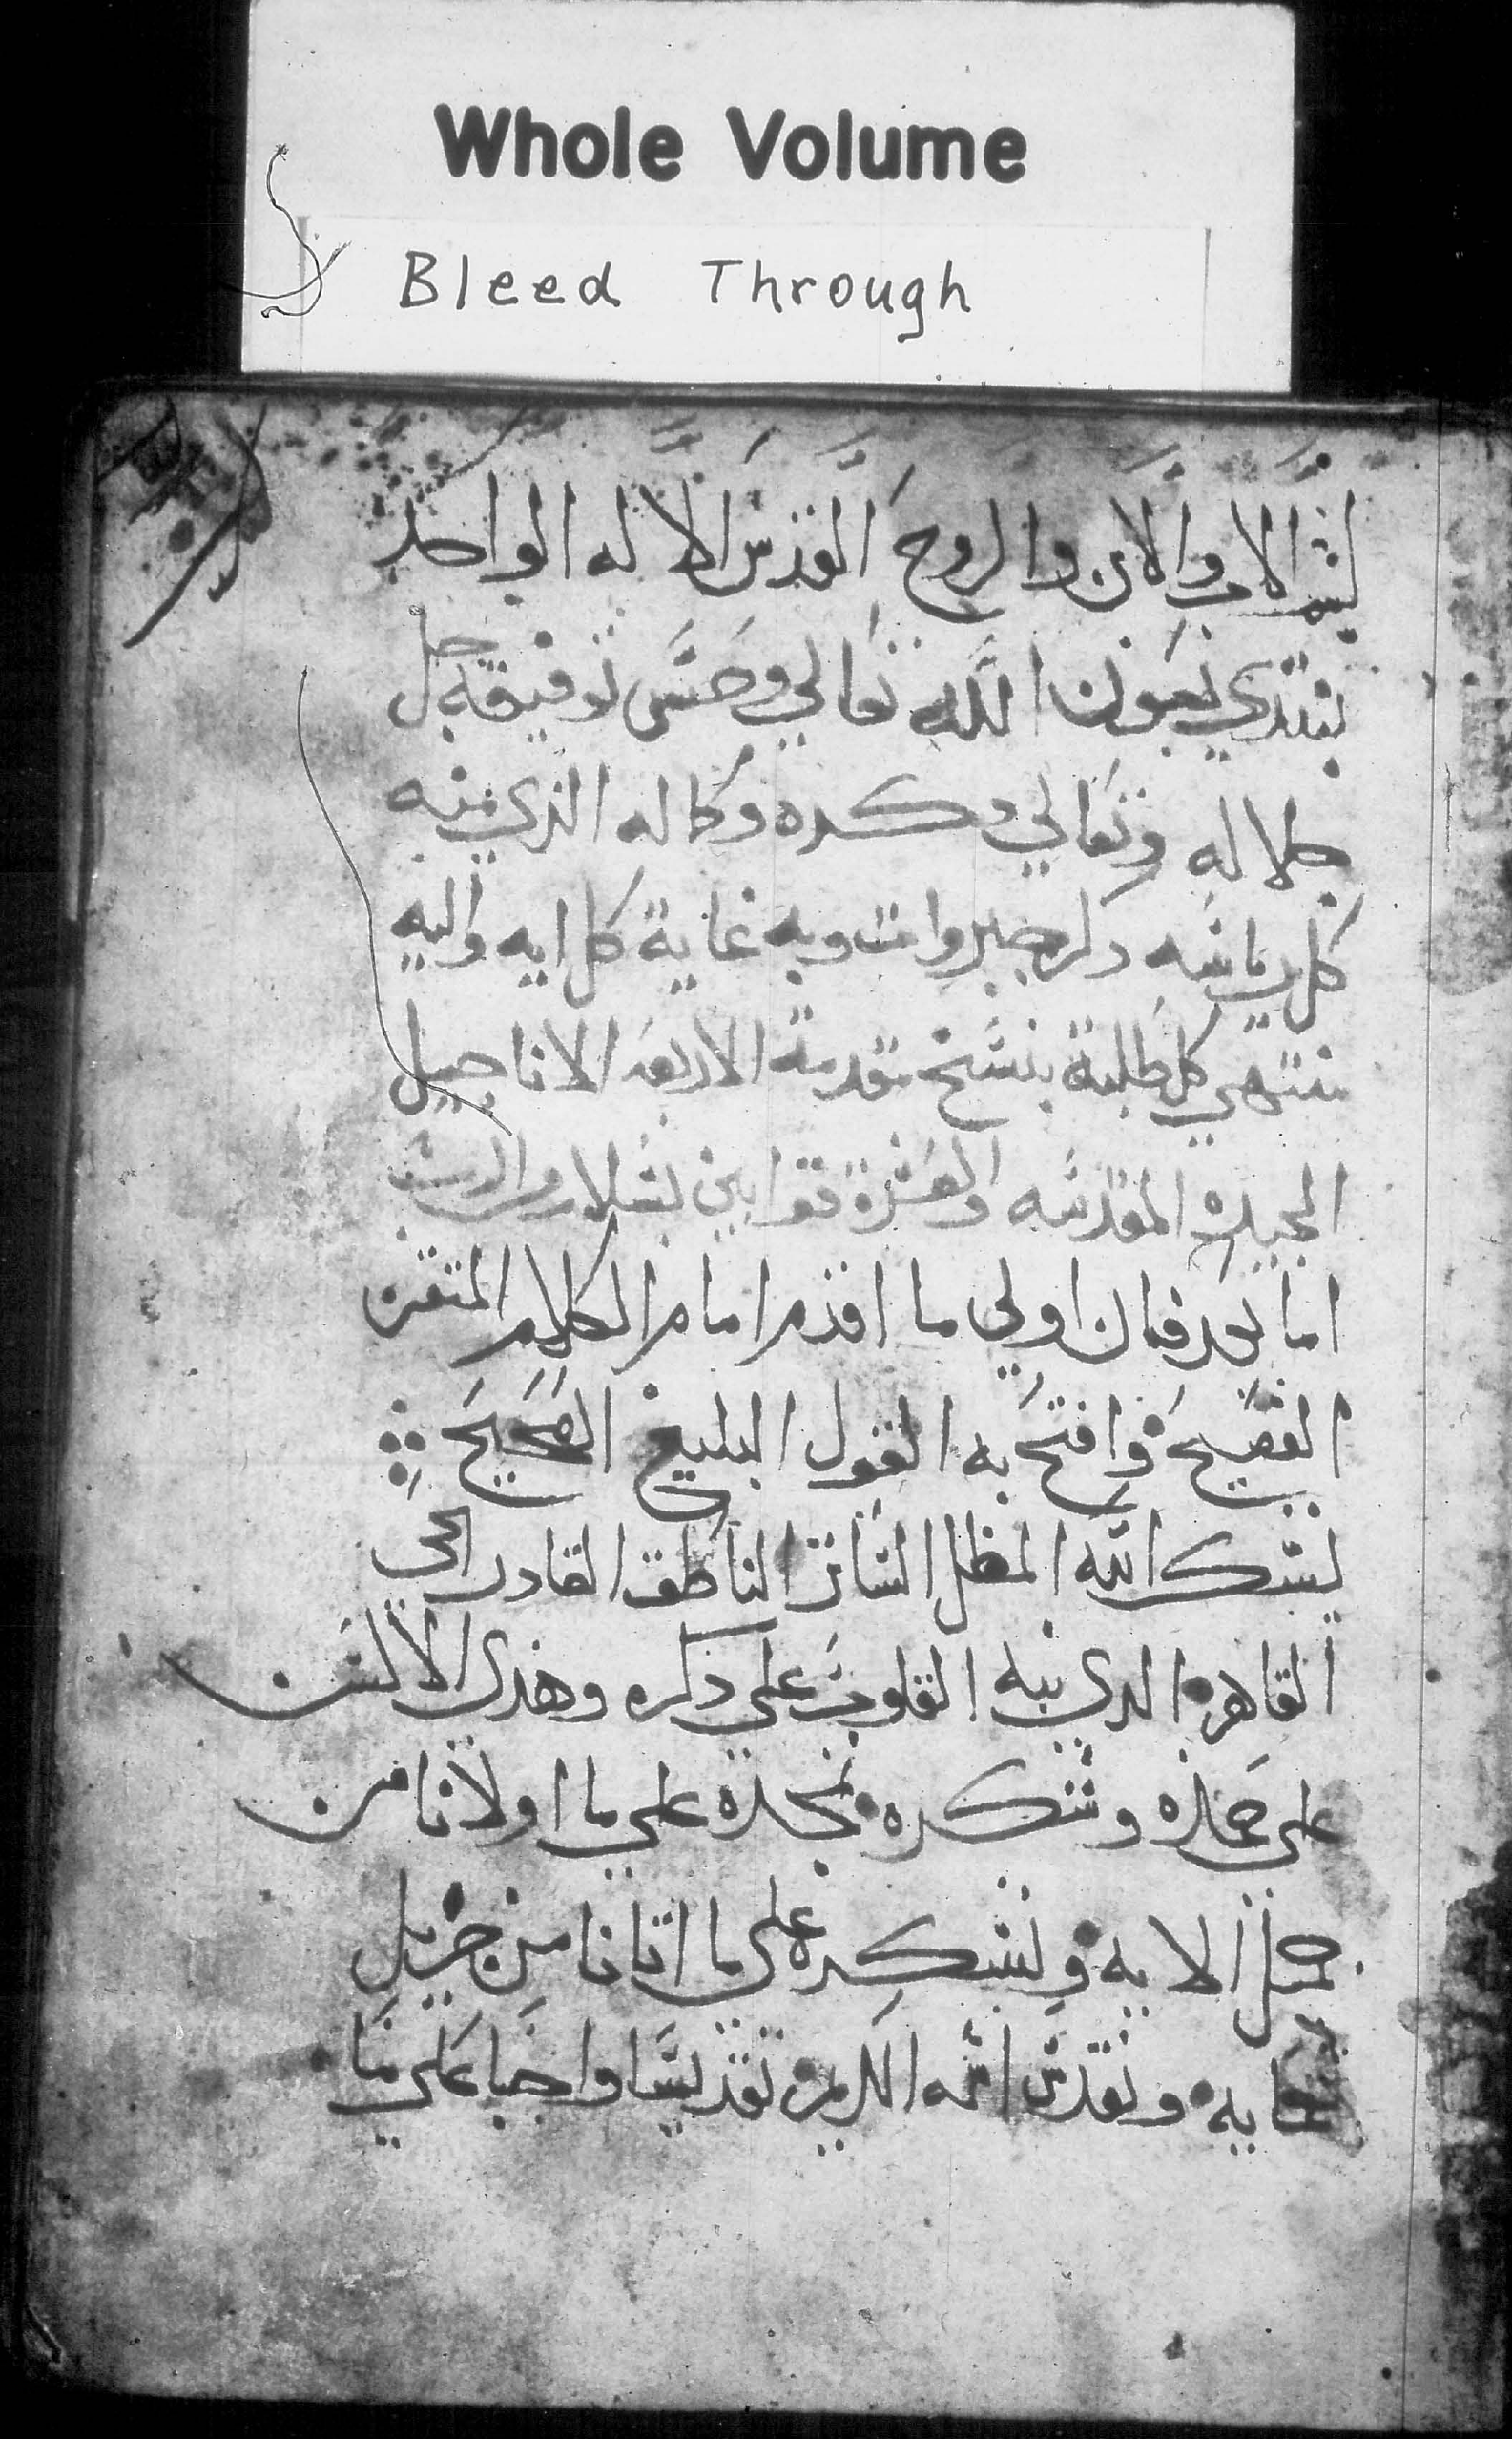 Whole Volume
Bleed Through
بسم الاب والابن والروح القدس الاله الواحد
نبتدي بعون الله تعالي وحسن توفيقه جل
جلاله وتعالي دكره وكماله الذي منه
كل رياسه وبه غاية كل ايه واليه
تنتهي كل طلبة بنسخ تقدمة الاربعه الاناجيل
المجيده المقدسه والعشرة قوانين بسلام من الرب
اما بعد فان اولي ما اقدم امام الكلام المتقن
الفصيح وافتح به القول البليغ الصحيح
بشكر الله الساتر الناطق القادر الحي
القاهر الدي نبه القلوب علي ذكره وهدي الالسن
علي حمده وشكره نمجده علي ما اولانا من
جميل الايه ونشكره علي ما اتانا من جزيل
نعمايه ونقدس اسمه الكريم تقديسا واجبا علي ما